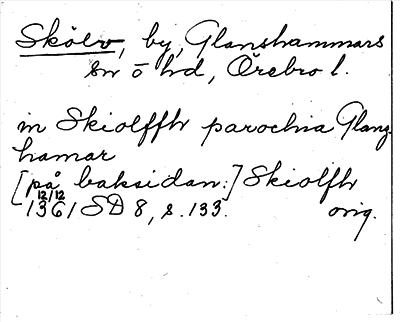 Skölv, by, Glanshammars
sn o hd, Örebro l.
in Skiolffh parochia Glanz-
hamar
[på baksidan:] Skiolfh
12/12
1361 SD 8, s. 133. orig.